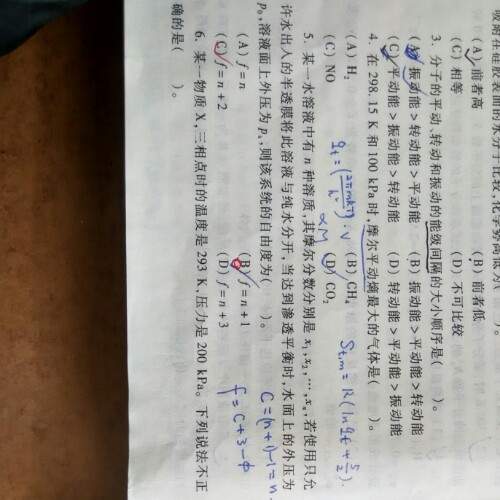 3. 分子的平动、转动和振动的能级间隔的大小顺序是(　　)。
(A) 振动能＞转动能＞平动能
(B) 振动能＞平动能＞转动能
(C) 平动能＞振动能＞转动能
(D) 转动能＞平动能＞振动能
4. 在 298.15 K 和 100 kPa 时,摩尔平动熵最大的气体是(　　)。
(A) H₂
(B) CH₄
(C) NO
(D) CO₂
Sₜ,m = R(ln qₜ + 5/2).
∝M
5. 某一水溶液中有 n 种溶质,其摩尔分数分别是 x₁,x₂,…,xₙ,若使用只允
许水出入的半透膜将此溶液与纯水分开,当达到渗透平衡时,水面上的外压为
p₀,溶液面上外压为 pₙ,则该系统的自由度为(　　)。
C=(n+1)-1=n.
(A) f=n
(B) f=n+1
(C) f=n+2
(D) f=n+3
f=C+3-φ
6. 某一物质 X,三相点时的温度是 293 K,压力是 200 kPa。下列说法不正
确的是(　　)。
(A) 前者高
(B) 前者低
(C) 相等
(D) 不可比较